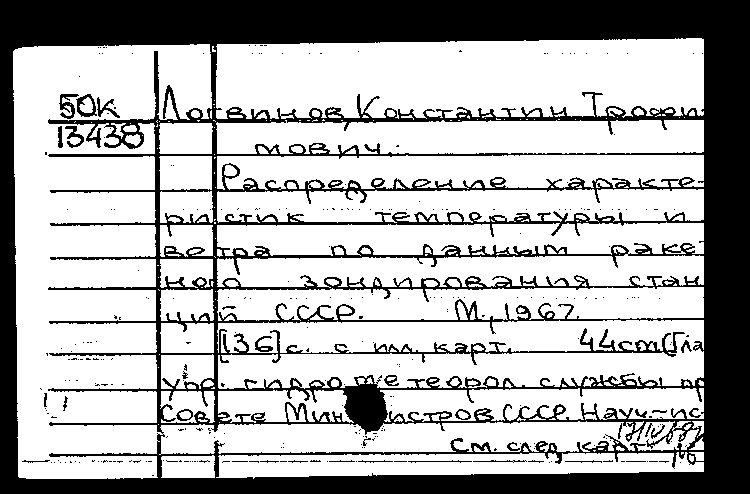 50к Логвинов, Константин Трофи-
13438
мович.
Распределение характе-
ристик температуры и
ветра по данным ракет
ного зондирования стан
ций СССР. М., 1967.
[36]с. с илл., карт. 44см (Гла
упр. гидрометеорол. службы пр
Совете Министров СССР. Науч.-ис
См. след. карт.